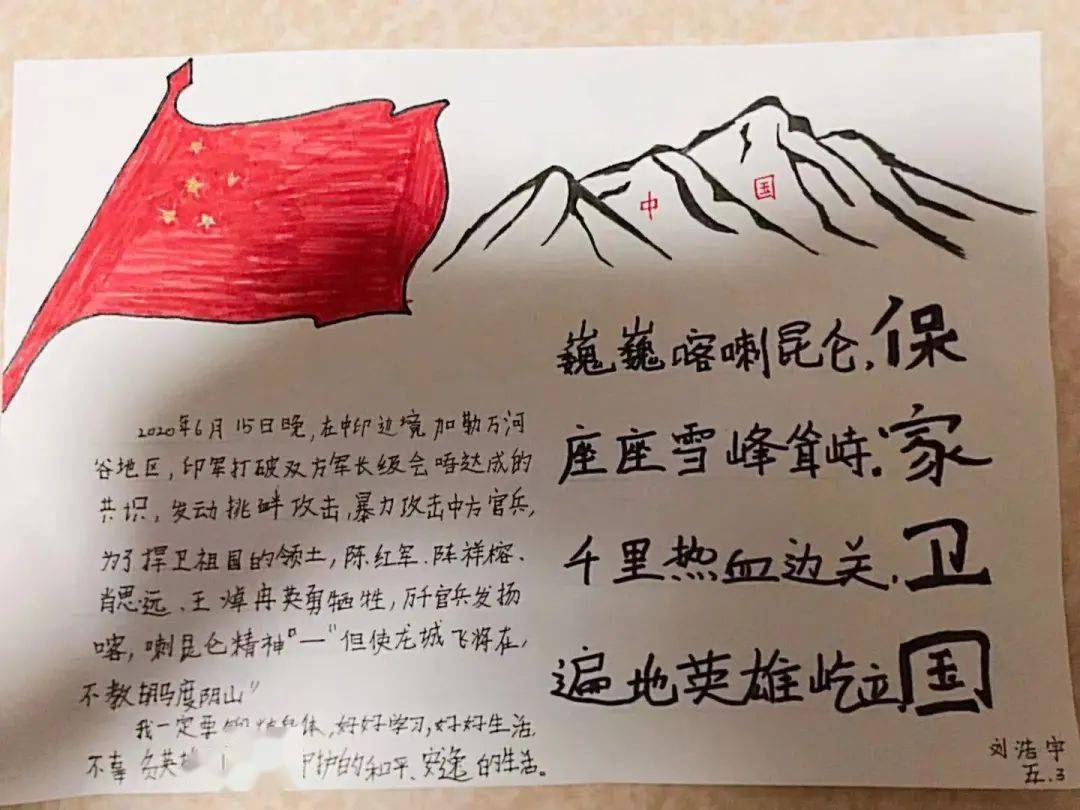 中国
巍巍喀喇昆仑,保
座座雪峰耸峙.家
千里热血边关,卫
遍地英雄屹立国
2020年6月15日晚,在中印边境加勒万河
谷地区,印军打破双方军长级会晤达成的
共识,发动挑衅攻击,暴力攻击中方官兵,
为了捍卫祖国的领土,陈红军、陈祥榕、
肖思远、王焯冉英勇牺牲,万千官兵发扬
喀,喇昆仑精神"—"但使龙城飞将在,
不教胡马度阴山"
我一定要 体,好好学习,好好生活,
不辜负英 护的和平、安逸的生活。
刘浩宇
五.3